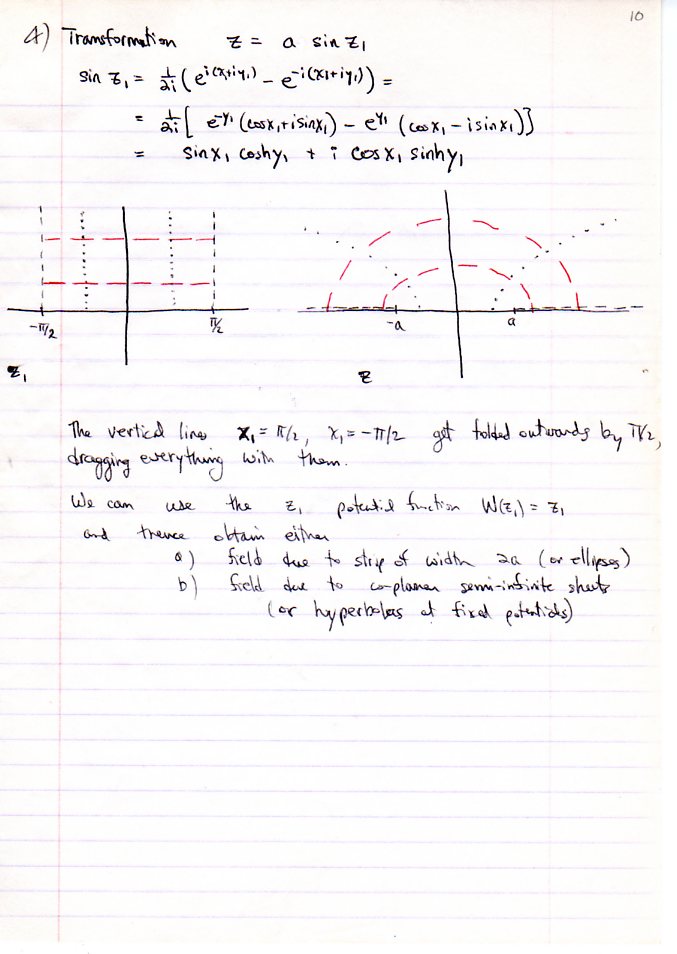 10
4) Transformation z = a sin z₁
sin z₁ = 1/2i (e^{i(x₁+iy₁)} − e^{−i(x₁+iy₁)}) =
= 1/2i [ e^{−y₁} (cosx₁+isinx₁) − e^{y₁} (cosx₁ − isinx₁)]
= sinx₁ coshy₁ + i cosx₁ sinhy₁
−π/2 π/2 −a a
z₁ z
The vertical lines x₁ = π/2, x₁ = −π/2 get folded outwards by π/2,
dragging everything with them.
We can use the z₁ potential function W(z₁) = z₁
and thence obtain either
a) field due to strip of width 2a (or ellipses)
b) field due to co-planar semi-infinite sheets
(or hyperbolas at fixed potentials)